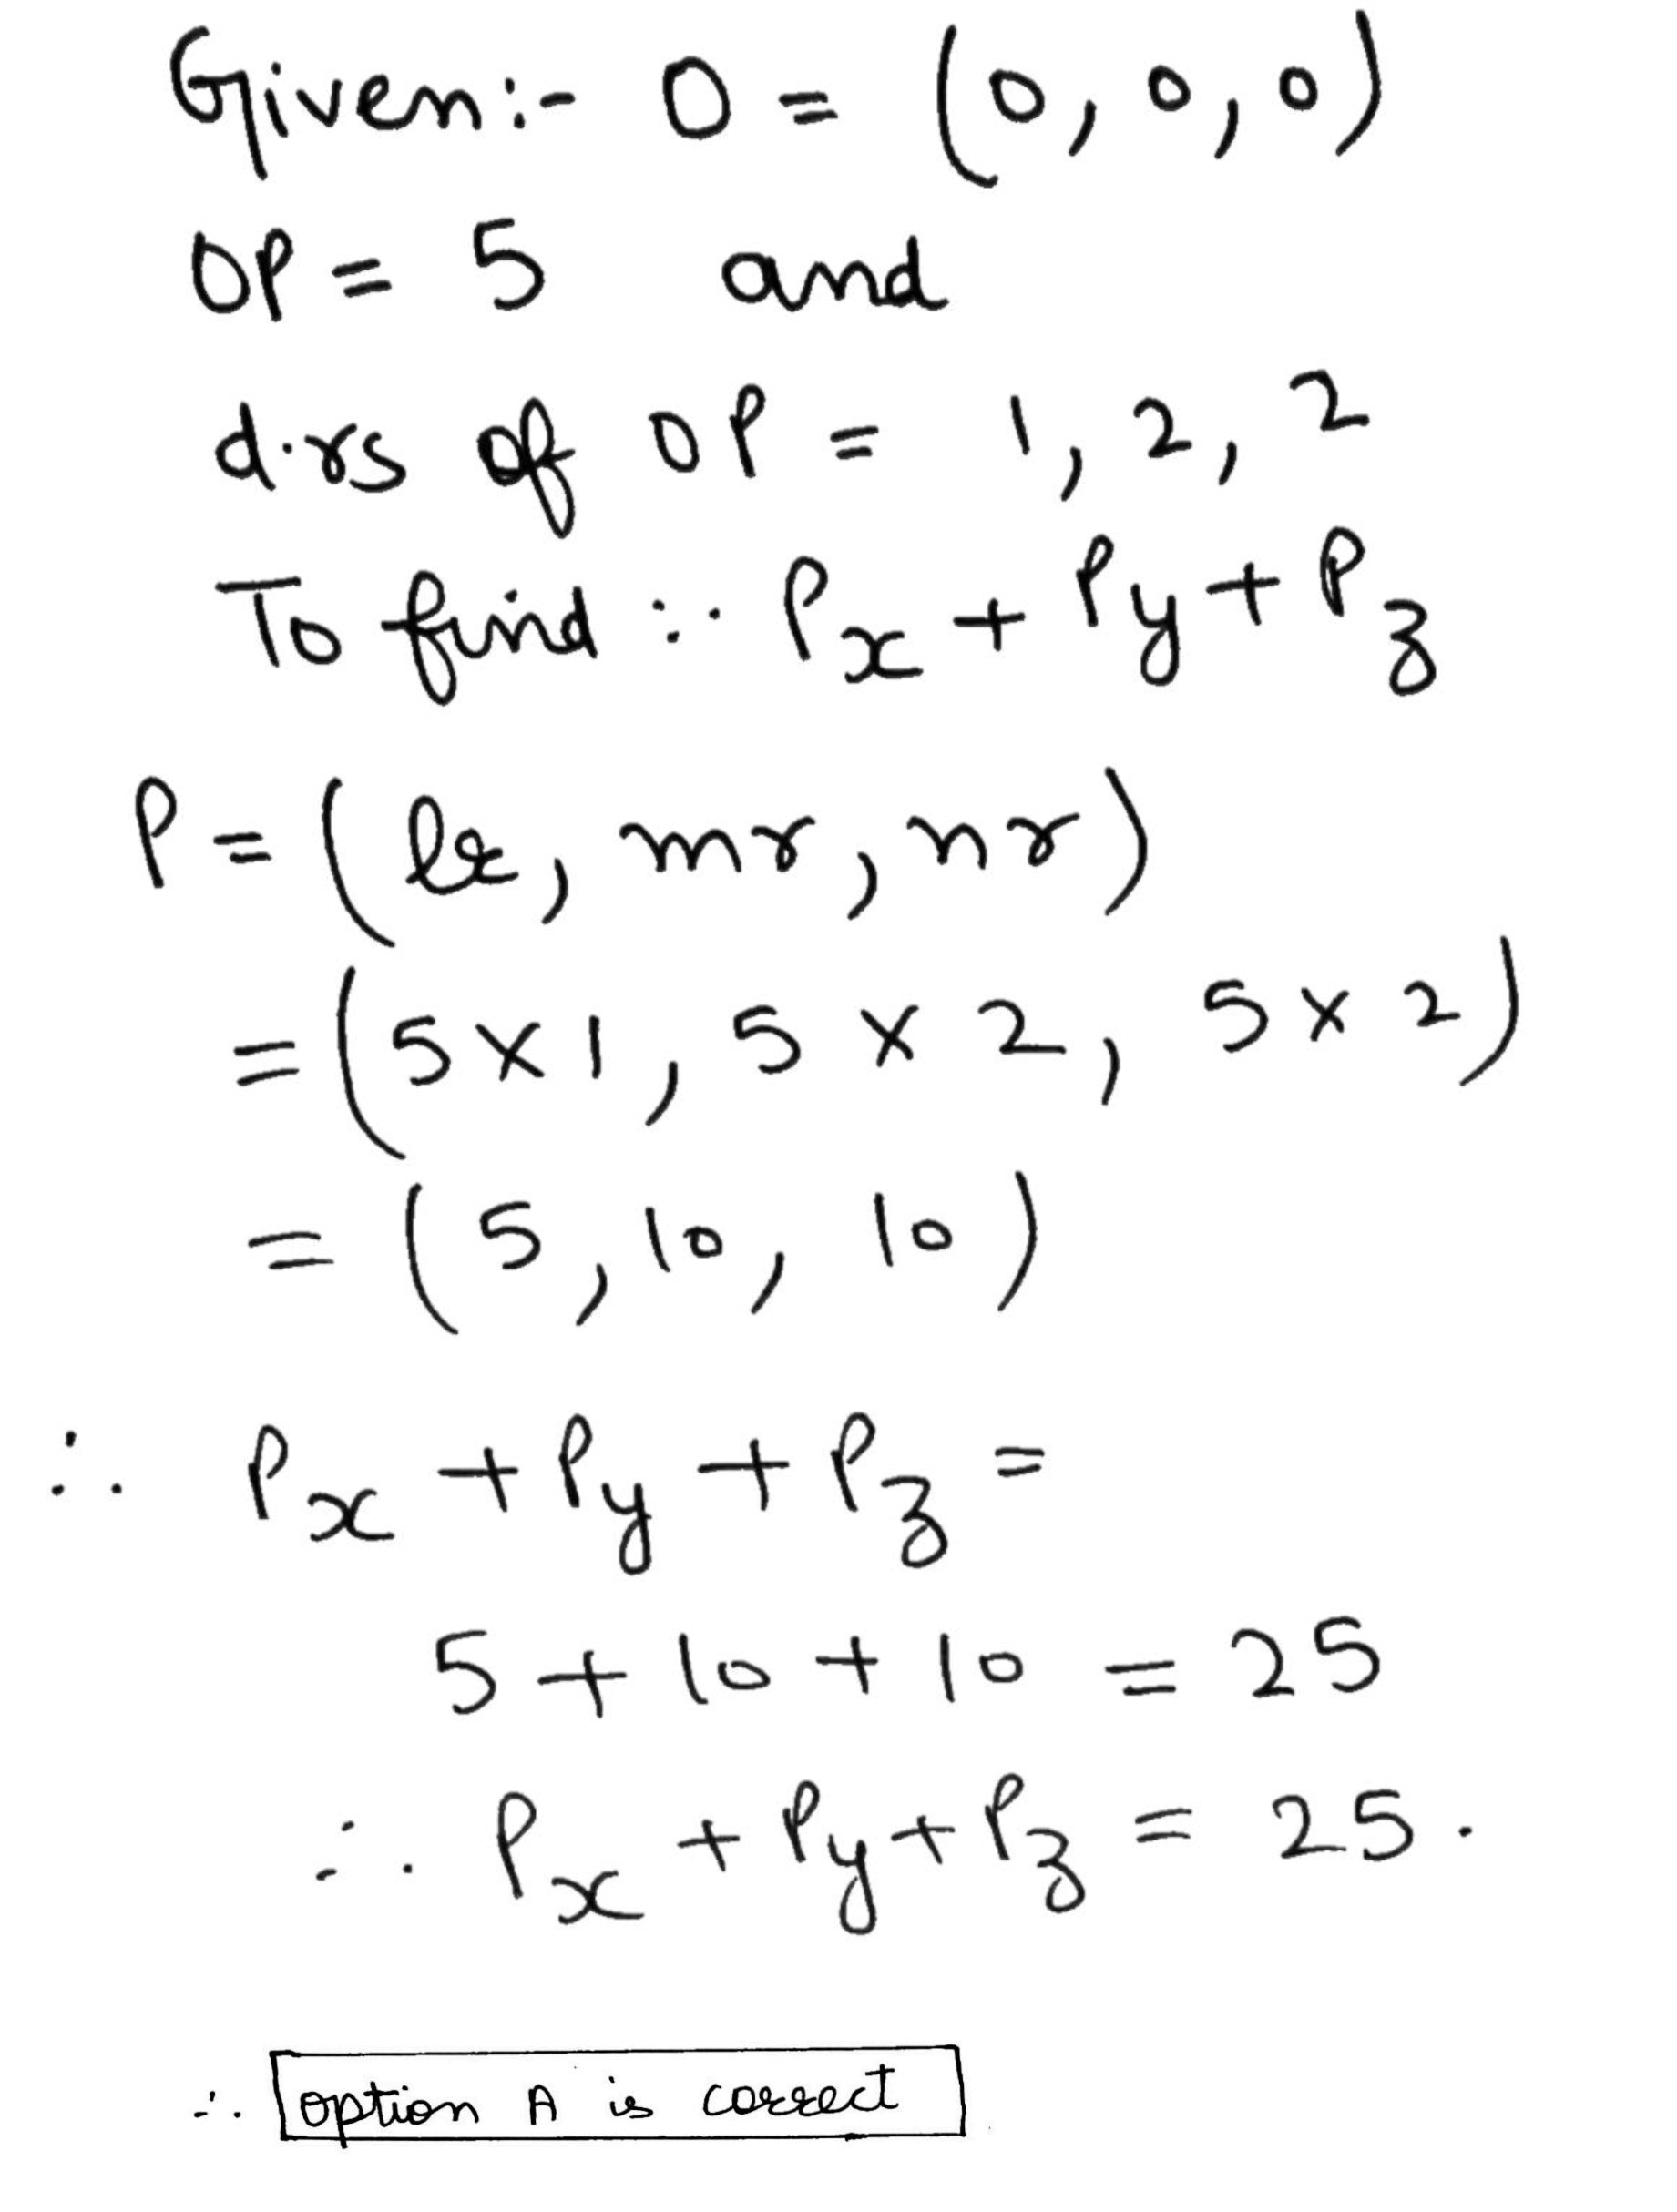 Given:- O = (0, 0, 0)
OP = 5 and
d.rs of OP = 1, 2, 2
To find :- Px + Py + Pz
P = (lr, mr, nr)
= (5×1, 5×2, 5×2)
= (5, 10, 10)
∴ Px + Py + Pz =
5 + 10 + 10 = 25
∴ Px + Py + Pz = 25.
∴ option A is correct